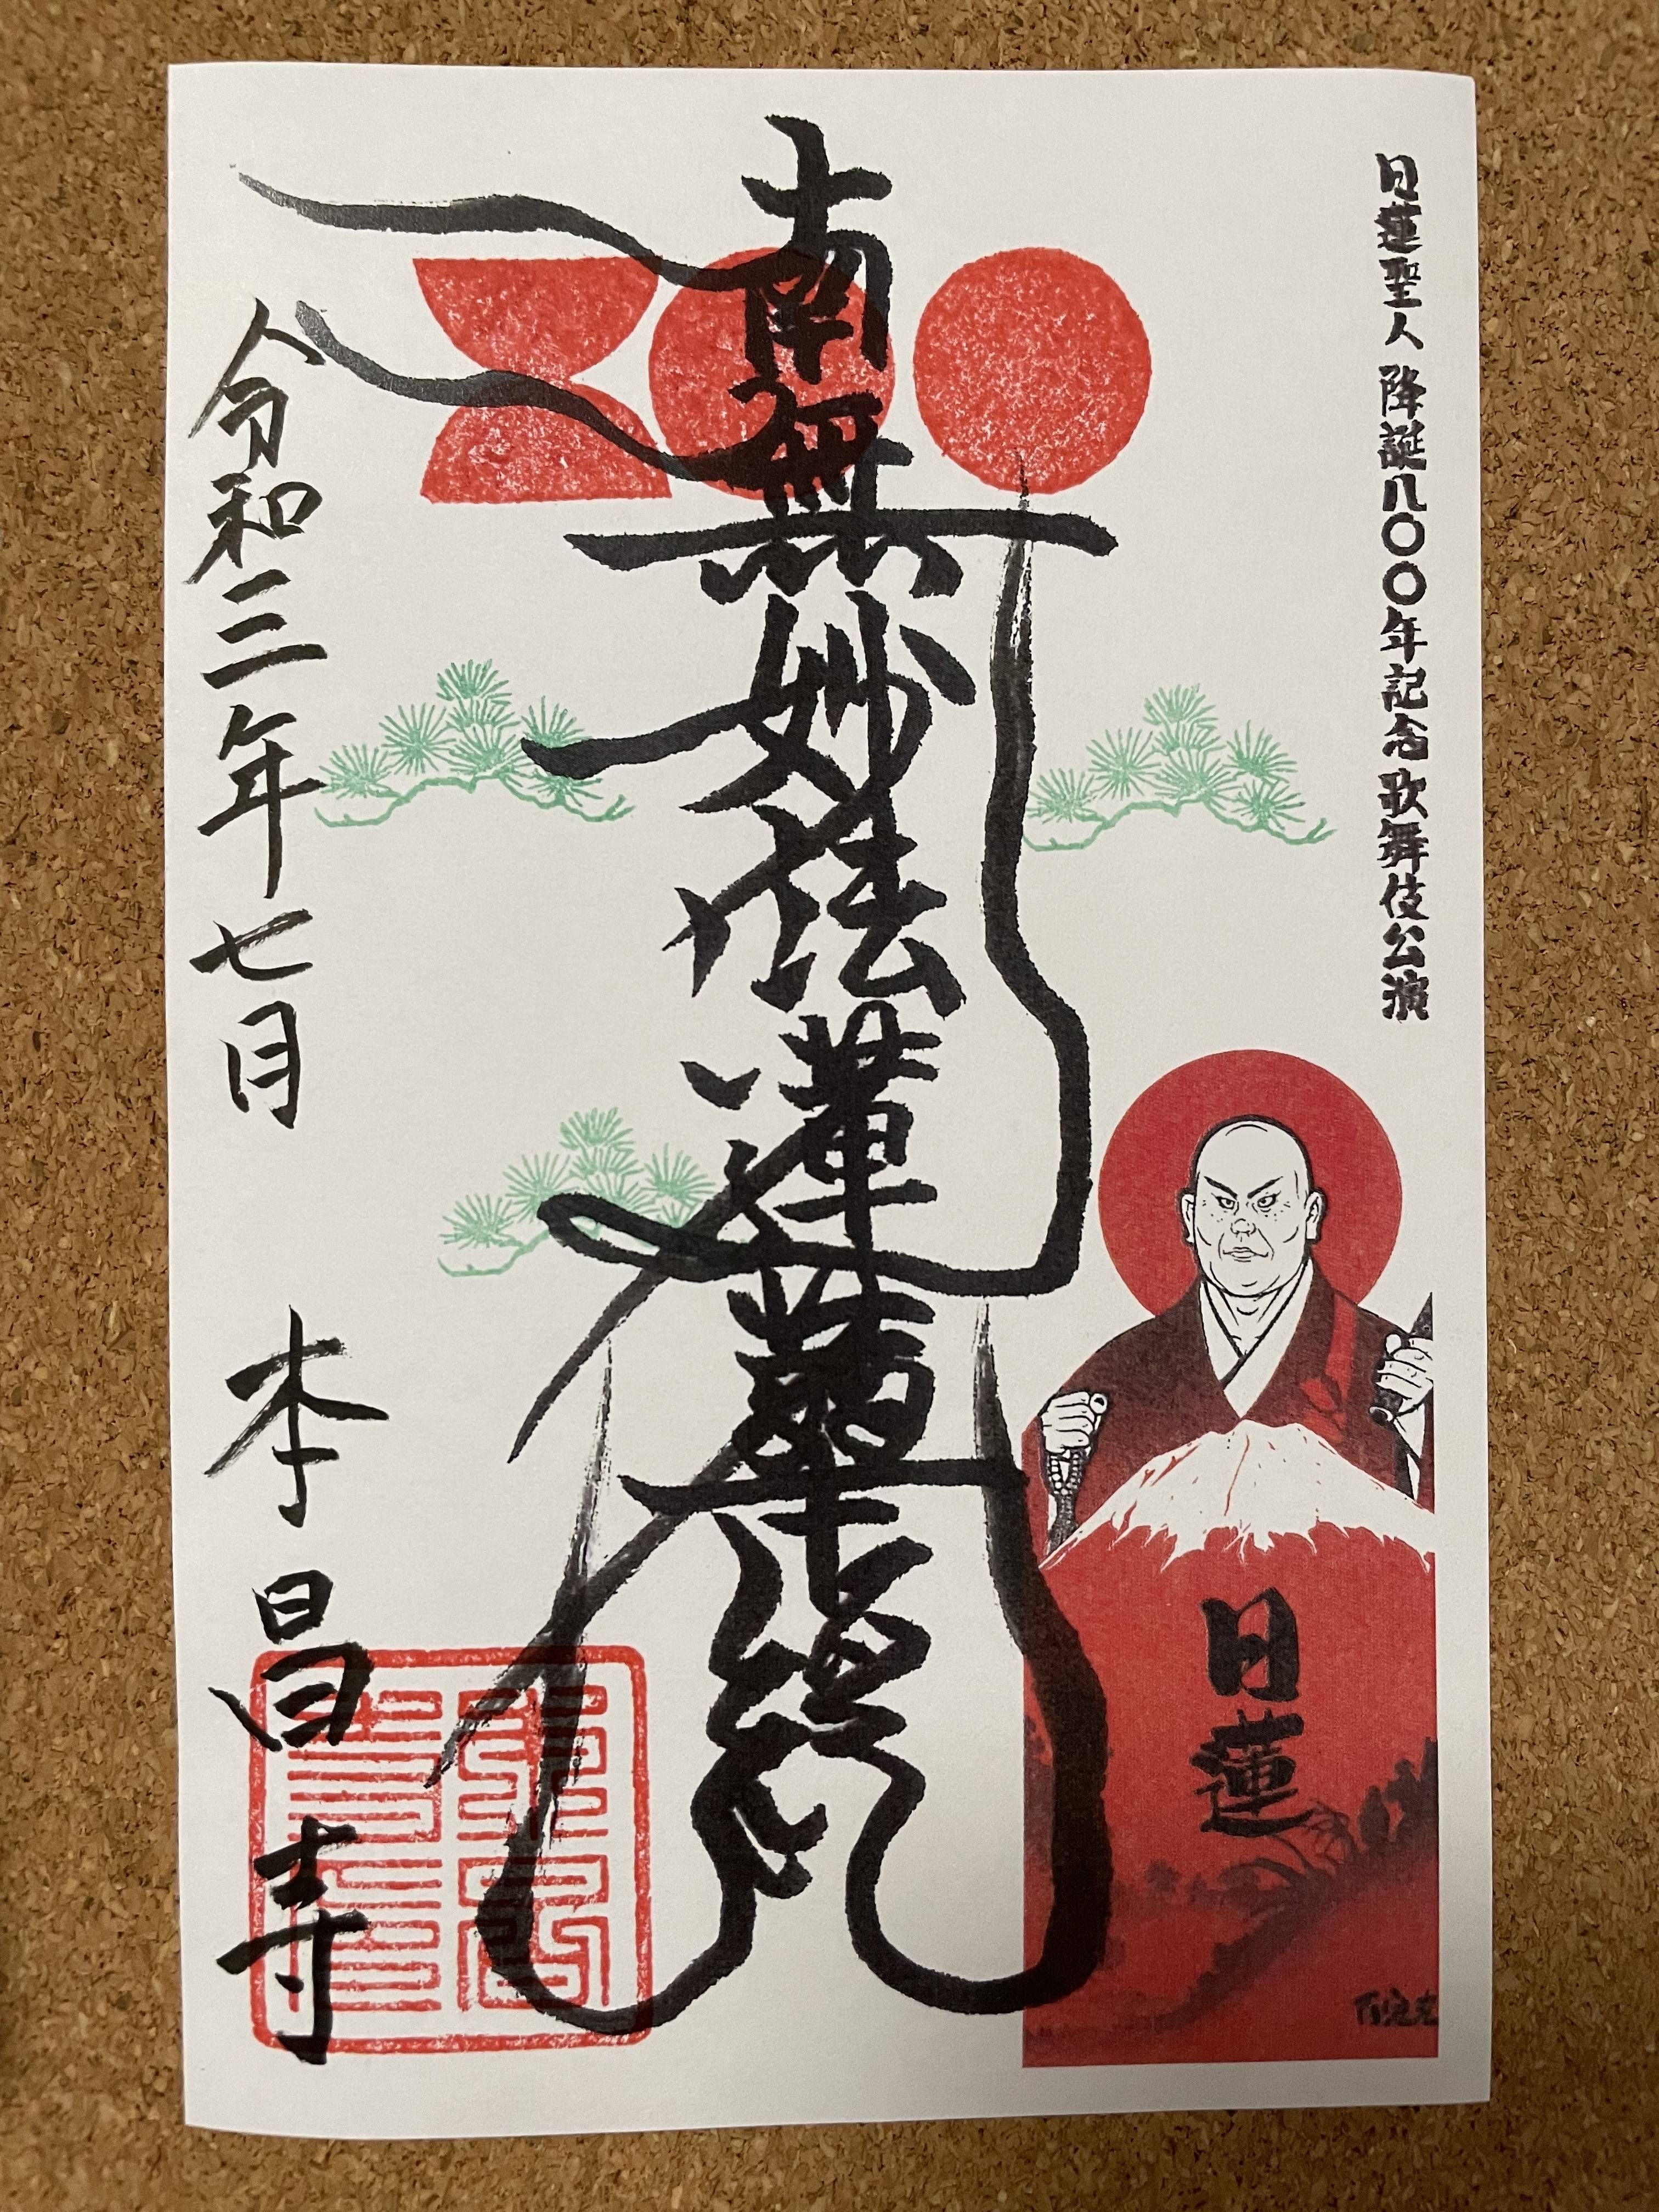 日蓮聖人降誕八〇〇年記念歌舞伎公演
日蓮
南無妙法蓮華経
令和三年七月 本昌寺